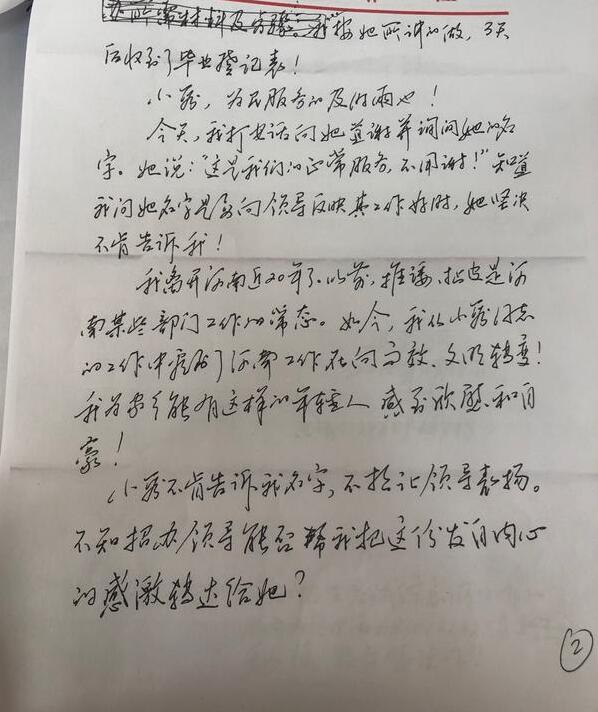 办所需材料及步骤。我按她所讲的做，3天
后收到了毕业登记表！
小骆，为民服务的及时雨也！
今天，我打电话向她道谢并询问她的名
字。她说：“这是我们的正常服务，不用谢！”知道
我问她名字是为向领导反映其工作好时，她坚决
不肯告诉我！
我离开河南近20年了。以前，推诿、扯皮是河
南某些部门工作的常态。如今，我从小骆同志
的工作中感到了河南工作在向高效、文明转变！
我为家乡能有这样的年轻人感到欣慰和自
豪！
小骆不肯告诉我名字，不想让领导表扬。
不知招办领导能否帮我把这份发自内心
的感激转达给她？
2